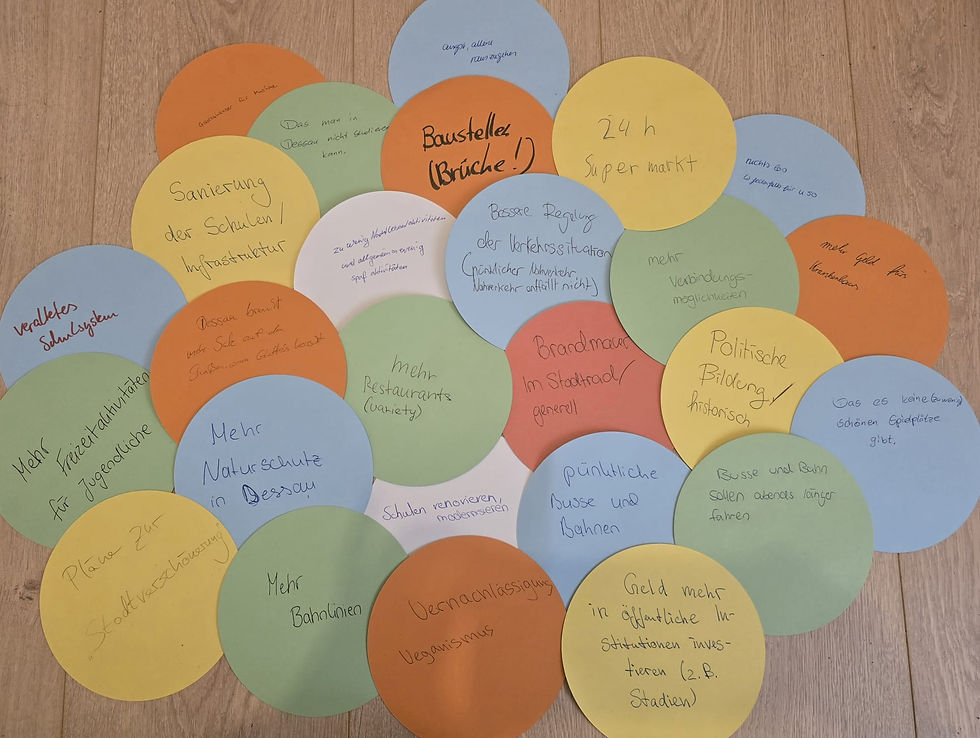 angst, alleine
rauszugehen
für
Das man in
Dessau nicht studieren
kann.
Baustellen
(Brüche!)
24 h
Supermarkt
nichts los
Sanierung
der Schulen/
Infrastruktur
zu wenig
und allgemein zu wenig
spaß aktivitäten
Bessere Regelung
der Verkehrssituation
(pünktlicher Nahverkehr,
Nahverkehr entfällt nicht)
mehr
Verbindungs-
möglichkeiten
mehr Geld fürs
Krankenhaus
veraltetes
Schulsystem
Dessau braucht
mehr Salz auf den
Straßen wenn
mehr
Restaurants
(variety)
Brandmauer
Im Stadtrad/
generell
Politische
Bildung/
historisch
Das es keine (zu wenig)
schönen Spielplätze
gibt.
Mehr
Freizeitaktivitäten
für Jugendliche
Mehr
Naturschutz
in Dessau
Schulen renovieren,
modernisieren
pünktliche
Busse und
Bahnen
Busse und Bahn
sollen abends länger
fahren
Pläne zur
Stadtverschönerung
Mehr
Bahnlinien
Vernachlässigung
Veganismus
Geld mehr
in öffentliche In-
stitutionen inves-
tieren (z.B.
Stadien)